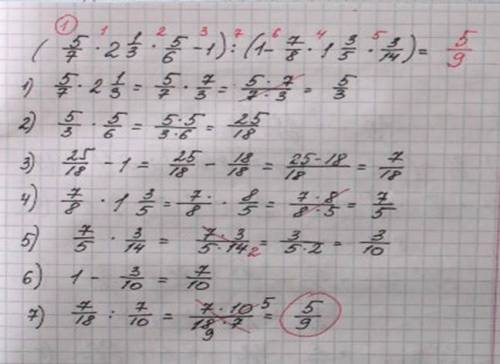 ①
( 5/7 · 2 1/3 · 5/6 - 1) : (1 - 7/8 · 1 3/5 · 3/14) = 5/9
1 2 3 7 6 4 5
1) 5/7 · 2 1/3 = 5/7 · 7/3 = 5·7/7·3 = 5/3
2) 5/3 · 5/6 = 5·5/3·6 = 25/18
3) 25/18 - 1 = 25/18 - 18/18 = 25-18/18 = 7/18
4) 7/8 · 1 3/5 = 7/8 · 8/5 = 7·8/8·5 = 7/5
5) 7/5 · 3/14 = 7·3/5·14 2 = 3/5·2 = 3/10
6) 1 - 3/10 = 7/10
7) 7/18 : 7/10 = 7·10 5/18·7 9 = 5/9